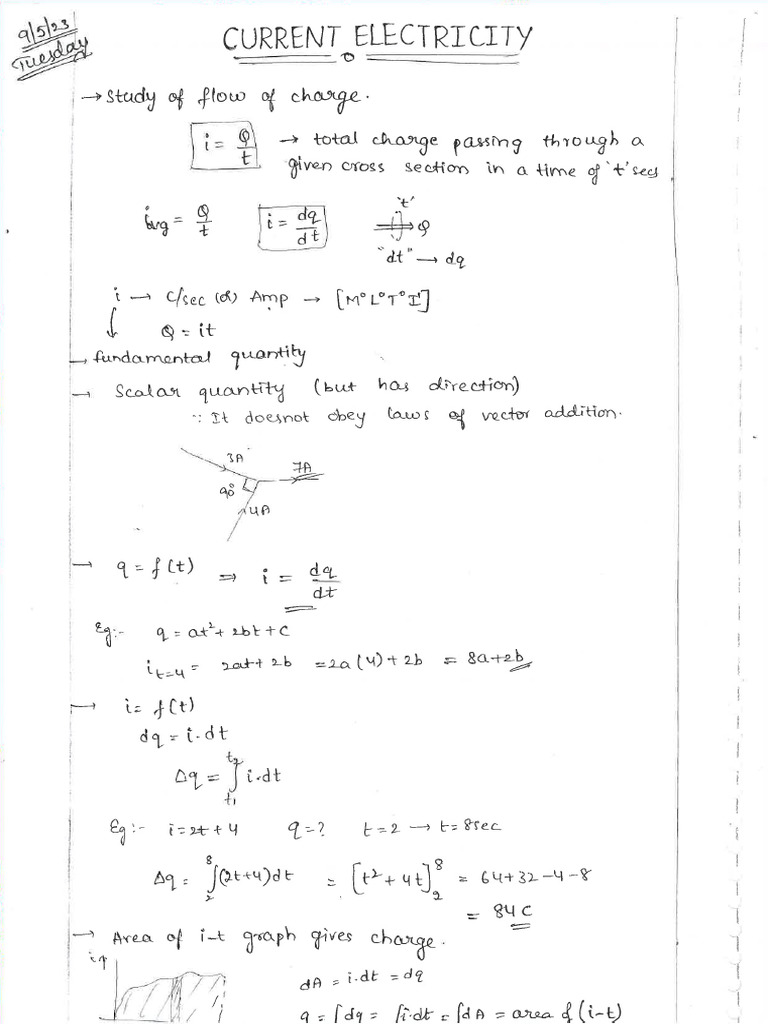 9/5/23
Tuesday
CURRENT ELECTRICITY
→ Study of flow of charge.
i = Q/t → total charge passing through a
given cross section in a time of 't' secs
iavg = Q/t i = dq/dt 't' Q
"dt" → dq
i → C/sec (or) Amp → [M°L°T°I¹]
Q = it
→ fundamental quantity
→ Scalar quantity (but has direction)
∵ It doesnot obey laws of vector addition.
3A
7A
90°
4A
→ q = f(t) ⇒ i = dq/dt
Eg:- q = at² + 2bt + C
i t=4 = 2at + 2b = 2a(4) + 2b = 8a+2b
→ i = f(t)
dq = i.dt
Δq = ∫t₁t₂ i.dt
Eg:- i = 2t + 4 q = ? t = 2 → t = 8sec
Δq = ∫₂⁸(2t+4)dt = [t² + 4t]₂⁸ = 64+32-4-8
= 84C
→ Area of i-t graph gives charge.
i↑ dA = i.dt = dq
q = ∫dq = ∫i.dt = ∫dA = area of (i-t)